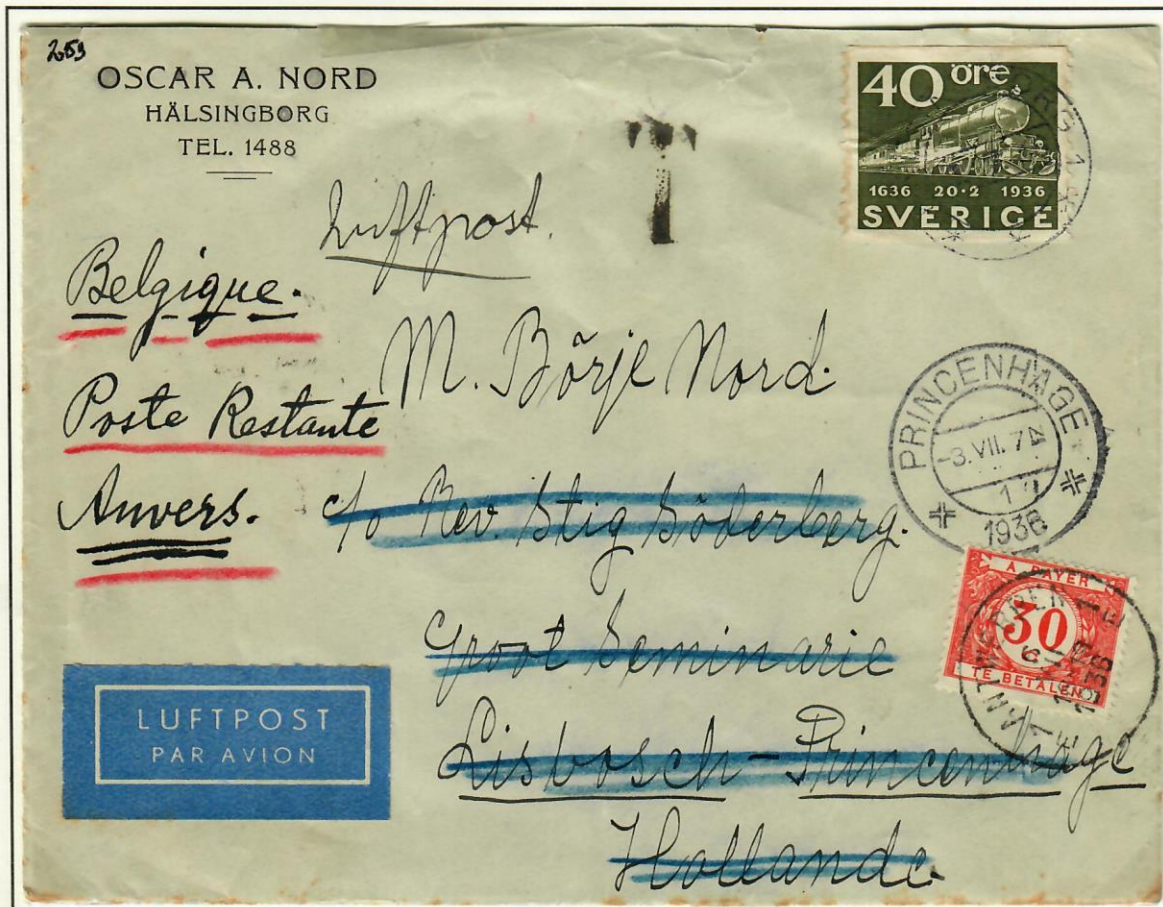 253
OSCAR A. NORD
HÄLSINGBORG
TEL. 1488
T
40 öre
1636 20·2 1936
SVERIGE
Luftpost.
Belgique.
Poste Restante
Anvers.
M. Börje Nord.
c/o Rev. Stig Söderberg.
Groot Seminarie
Lisbosch-Princenhage
Hollande.
PRINCENHAGE
-3.VII.7N
1936
A PAYER
30
TE BETALEN
ANTWERPEN 1
1936
LUFTPOST
PAR AVION